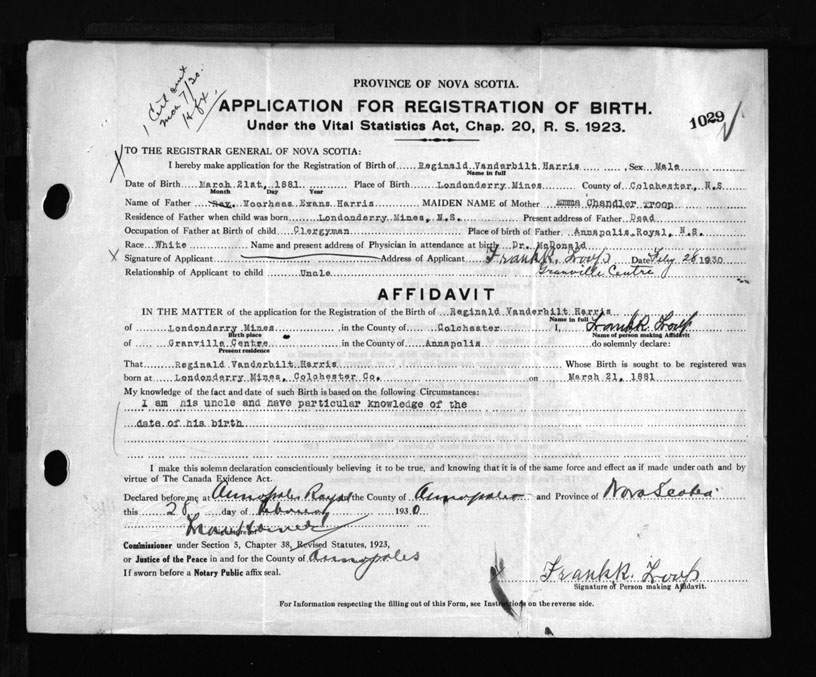 1 Cert sent
Mar 7/30.
Hfx.
PROVINCE OF NOVA SCOTIA.
APPLICATION FOR REGISTRATION OF BIRTH.
Under the Vital Statistics Act, Chap. 20, R. S. 1923.
1029
TO THE REGISTRAR GENERAL OF NOVA SCOTIA:
I hereby make application for the Registration of Birth of Reginald Vanderbilt Harris, Sex Male
Name in full
Date of Birth March 21st, 1881 Place of Birth Londonderry Mines County of Colchester, N.S
Month Day Year
Name of Father Rev. Voorhees Evans Harris MAIDEN NAME of Mother Emma Chandler Troop
Residence of Father when child was born Londonderry Mines, N.S. Present address of Father Dead
Occupation of Father at Birth of child Clergyman Place of birth of Father Annapolis Royal, N.S.
Race White Name and present address of Physician in attendance at birth Dr. McDonald
Signature of Applicant Address of Applicant Frank R. Troop Date Feby 28 1930
Granville Centre
Relationship of Applicant to child Uncle
AFFIDAVIT
IN THE MATTER of the application for the Registration of the Birth of Reginald Vanderbilt Harris
Name in full
of Londonderry Mines in the County of Colchester I, Frank R. Troop
Birth place Name of person making Affidavit
of Granville Centre in the County of Annapolis do solemnly declare:
Present residence
That Reginald Vanderbilt Harris Whose Birth is sought to be registered was
born at Londonderry Mines, Colchester Co. on March 21, 1881
My knowledge of the fact and date of such Birth is based on the following Circumstances:
I am his uncle and have particular knowledge of the
date of his birth
I make this solemn declaration conscientiously believing it to be true, and knowing that it is of the same force and effect as if made under oath and by
virtue of The Canada Evidence Act.
Declared before me at Annapolis Royal in the County of Annapolis and Province of Nova Scotia
this 28 day of February 1930
Commissioner under Section 5, Chapter 38, Revised Statutes, 1923,
or Justice of the Peace in and for the County of Annapolis
If sworn before a Notary Public affix seal.
Frank R. Troop
Signature of Person making Affidavit.
For Information respecting the filling out of this Form, see Instructions on the reverse side.